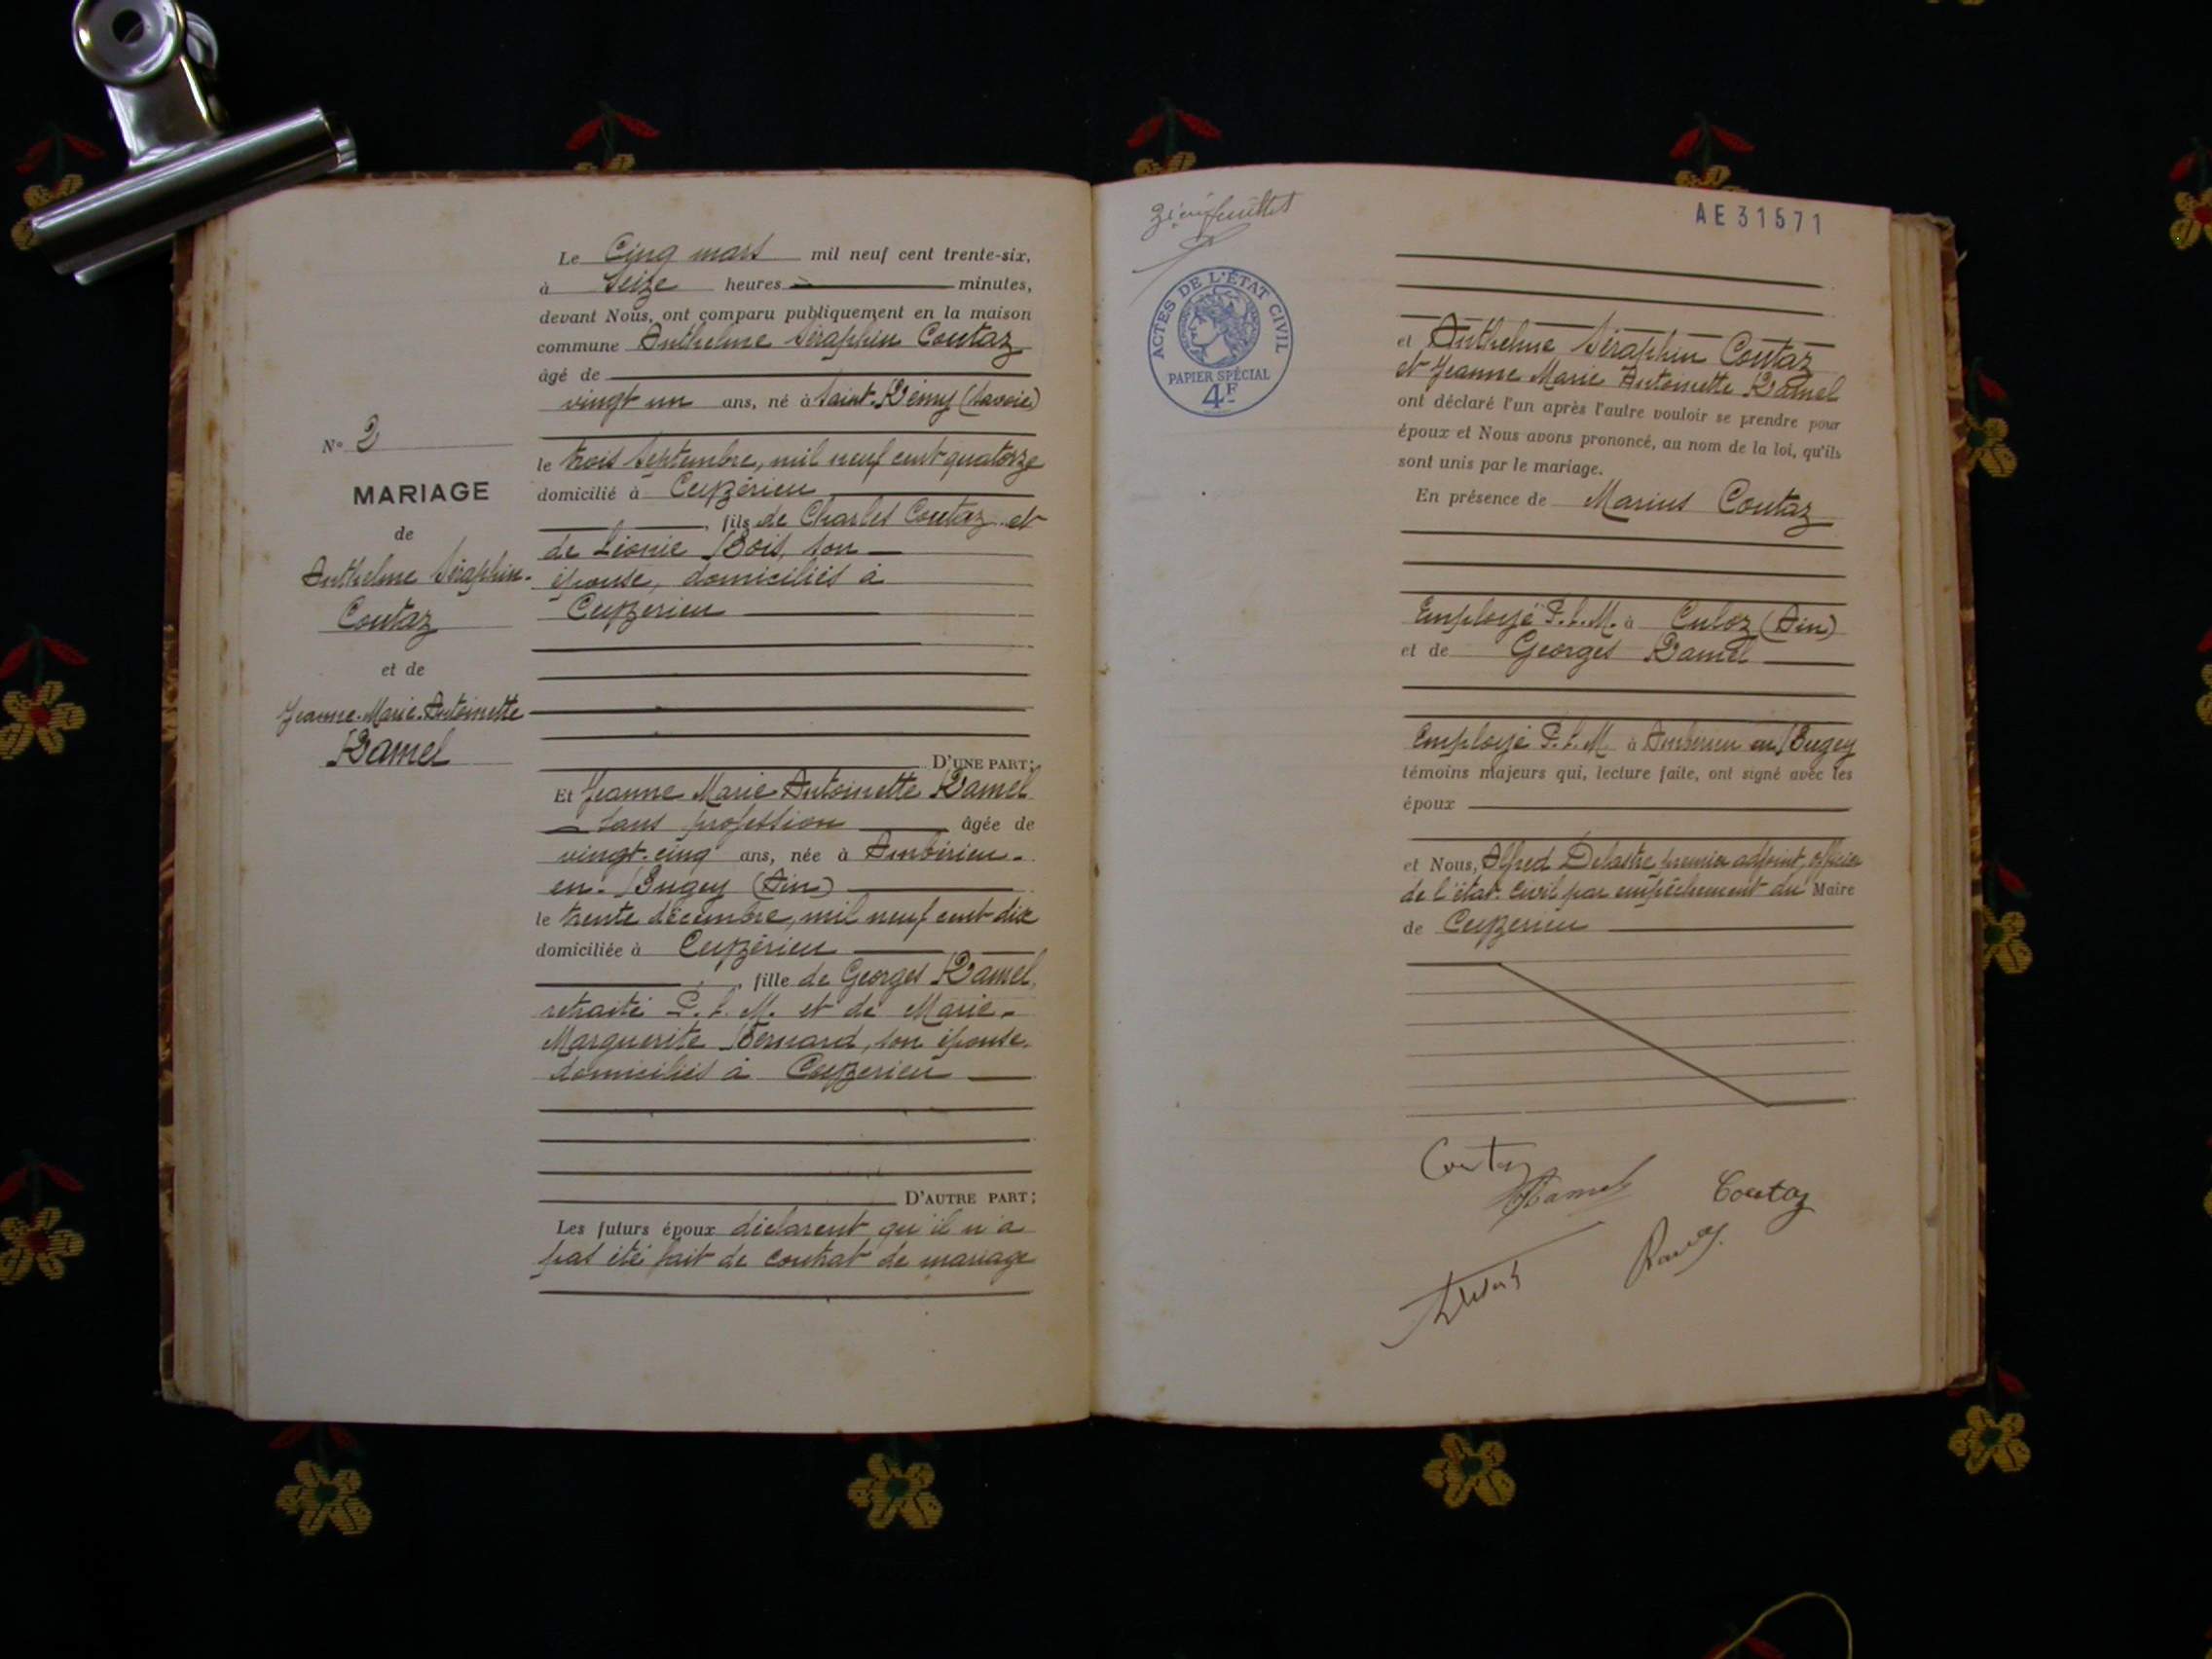 N° 2
MARIAGE
de
Anthelme Séraphin
Coutaz
et de
Jeanne-Marie-Antoinette
Ramel
Le Cinq mars mil neuf cent trente-six,
à seize heures minutes,
devant Nous, ont comparu publiquement en la maison
commune Anthelme Séraphin Coutaz
âgé de
vingt un ans, né à Saint-Rémy (Savoie)
le trois Septembre, mil neuf cent quatorze
domicilié à Ceyzérieu
, fils de Charles Coutaz et
de Léonie Bois, son
épouse, domiciliés à
Ceyzerieu
D'UNE PART;
Et Jeanne Marie Antoinette Ramel
sans profession âgée de
vingt-cinq ans, née à Ambérieu-
en-Bugey (Ain)
le trente décembre, mil neuf cent dix
domiciliée à Ceyzérieu
, fille de Georges Ramel,
retraité P.L.M. et de Marie-
Marguerite Bernard, son épouse.
domiciliés à Ceyzerieu
D'AUTRE PART;
Les futurs époux déclarent qu'il n'a
pas été fait de contrat de mariage
feuillet
AE31571
ACTES DE L'ÉTAT CIVIL
PAPIER SPÉCIAL
4F
et Anthelme Séraphin Coutaz
et Jeanne Marie Antoinette Ramel
ont déclaré l'un après l'autre vouloir se prendre pour
époux et Nous avons prononcé, au nom de la loi, qu'ils
sont unis par le mariage.
En présence de Marius Coutaz
Employé P.L.M. à Culoz (Ain)
et de Georges Ramel
Employé P.L.M. à Ambérieu en Bugey
témoins majeurs qui, lecture faite, ont signé avec les
époux
et Nous, Alfred Delastre, premier adjoint, officier
de l'état-civil par empêchement du Maire
de Ceyzerieu
Coutaz
Ramel
Coutaz